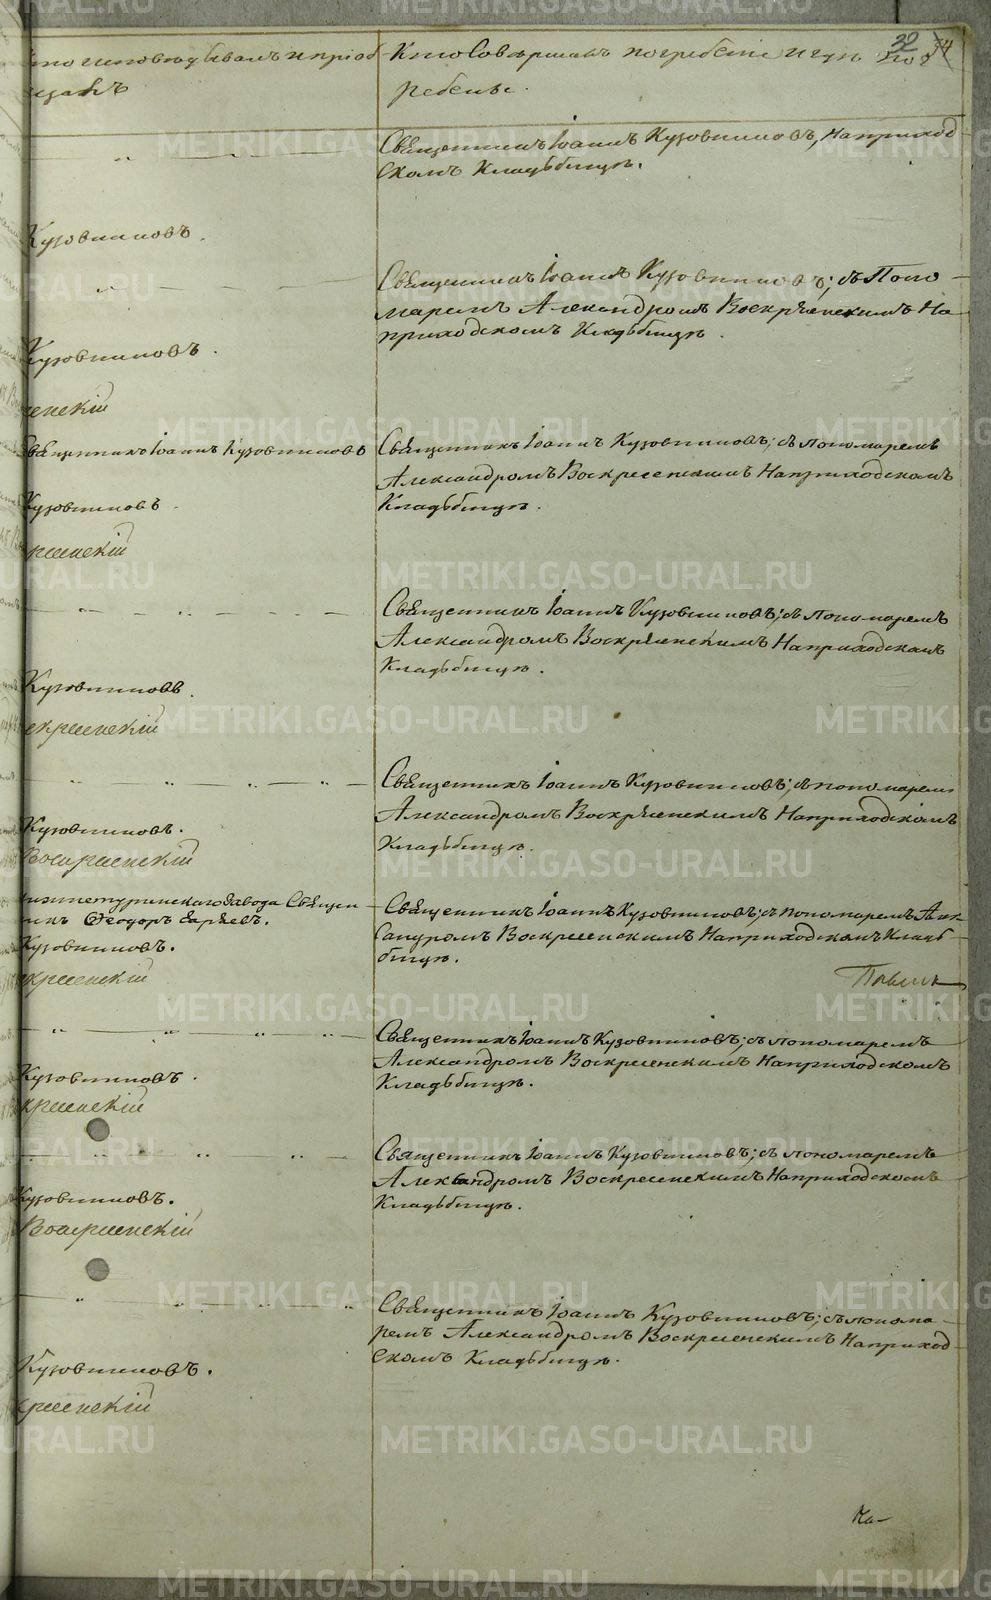 32 34
кто исповѣдывалъ и пріоб
щалъ
Кто совершалъ погребеніе и гдѣ пог
ребены.
Священникъ Іоаннъ Кузовниковъ, На приход
скомъ Кладьбищѣ.
Кузовниковъ.
Священникъ Іоаннъ Кузовниковъ; съ Поно-
маремъ Александромъ Воскресенскимъ На
приходскомъ Кладьбищѣ.
Кузовниковъ.
енскій
Священникъ Іоаннъ Кузовниковъ
Священникъ Іоаннъ Кузовниковъ; съ пономаремъ
Александромъ Воскресенскимъ На приходскомъ
Кладьбищѣ.
Кузовниковъ.
кресенскій
Священникъ Іоаннъ Кузовниковъ; съ пономаремъ
Александромъ Воскресенскимъ На приходскомъ
Кладьбищѣ.
Кузовниковъ.
скресенскій
Священникъ Іоаннъ Кузовниковъ; съ пономаремъ
Александромъ Воскресенскимъ На приходскомъ
Кладьбищѣ.
Кузовниковъ.
Воскресенскій
Нижнетуринскаго Завода Священ
никъ Ѳеодоръ
Кузовниковъ.
скресенскій
Священникъ Іоаннъ Кузовниковъ; съ пономаремъ Алек
сандромъ Воскресенскимъ На приходскомъ Кладь-
бищѣ.
Священникъ Іоаннъ Кузовниковъ; съ пономаремъ
Александромъ Воскресенскимъ На приходскомъ
Кладьбищѣ.
Кузовниковъ.
кресенскій
Священникъ Іоаннъ Кузовниковъ; съ пономаремъ
Александромъ Воскресенскимъ На приходскомъ
Кладьбищѣ.
Кузовниковъ.
Воскресенскій
Священникъ Іоаннъ Кузовниковъ; съ понома-
ремъ Александромъ Воскресенскимъ На приход-
скомъ Кладьбищѣ.
Кузовниковъ.
кресенскій
Ка-
METRIKI.GASO-URAL.RU